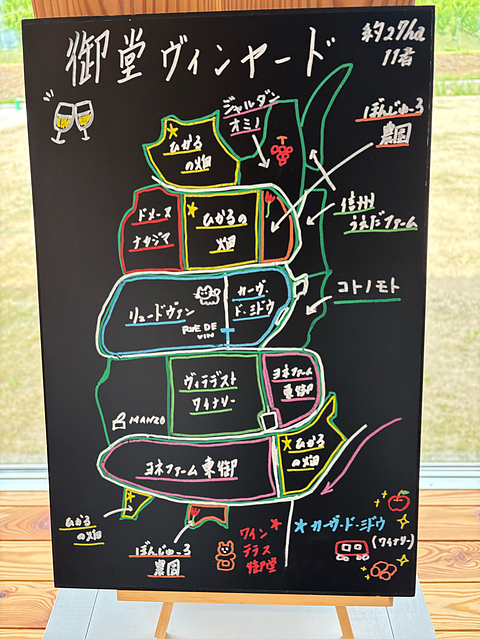 御堂ヴィンヤード
約27ha
11者
ジャルダン
オミノ
ぼんじゅーる
農園
ひかる
の畑
信州
うえだファーム
ドメーヌ
ナカジマ
ひかるの
畑
コトノモト
リュードヴァン
RUE DE
VIN
カーヴ・
ド・ミドウ
ヴィラデスト
ワイナリー
ヨネファーム
東御
MANZO
ヨネファーム東御
ひかる
の畑
ひかる
の畑
ぼんじゅーる
農園
ワイン
テラス
御堂
カーヴ・ド・ミドウ
(ワイナリー)